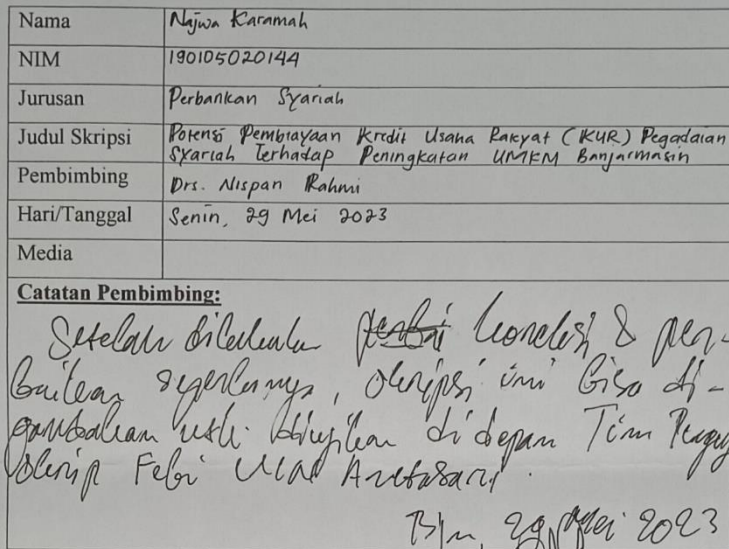 Nama Najwa Karamah
NIM 190105020144
Jurusan Perbankan Syariah
Judul Skripsi Potensi Pembiayaan Kredit Usaha Rakyat (KUR) Pegadaian
Syariah Terhadap Peningkatan UMKM Banjarmasin
Pembimbing Drs. Nispan Rahmi
Hari/Tanggal Senin, 29 Mei 2023
Media
Catatan Pembimbing:
Setelah dilakukan koreksi & per-
baikan seperlunya, skripsi ini bisa di-
utk. diujikan di depan Tim
Skrip Febi UIN Antasari.
Bjm, 29 Mei 2023